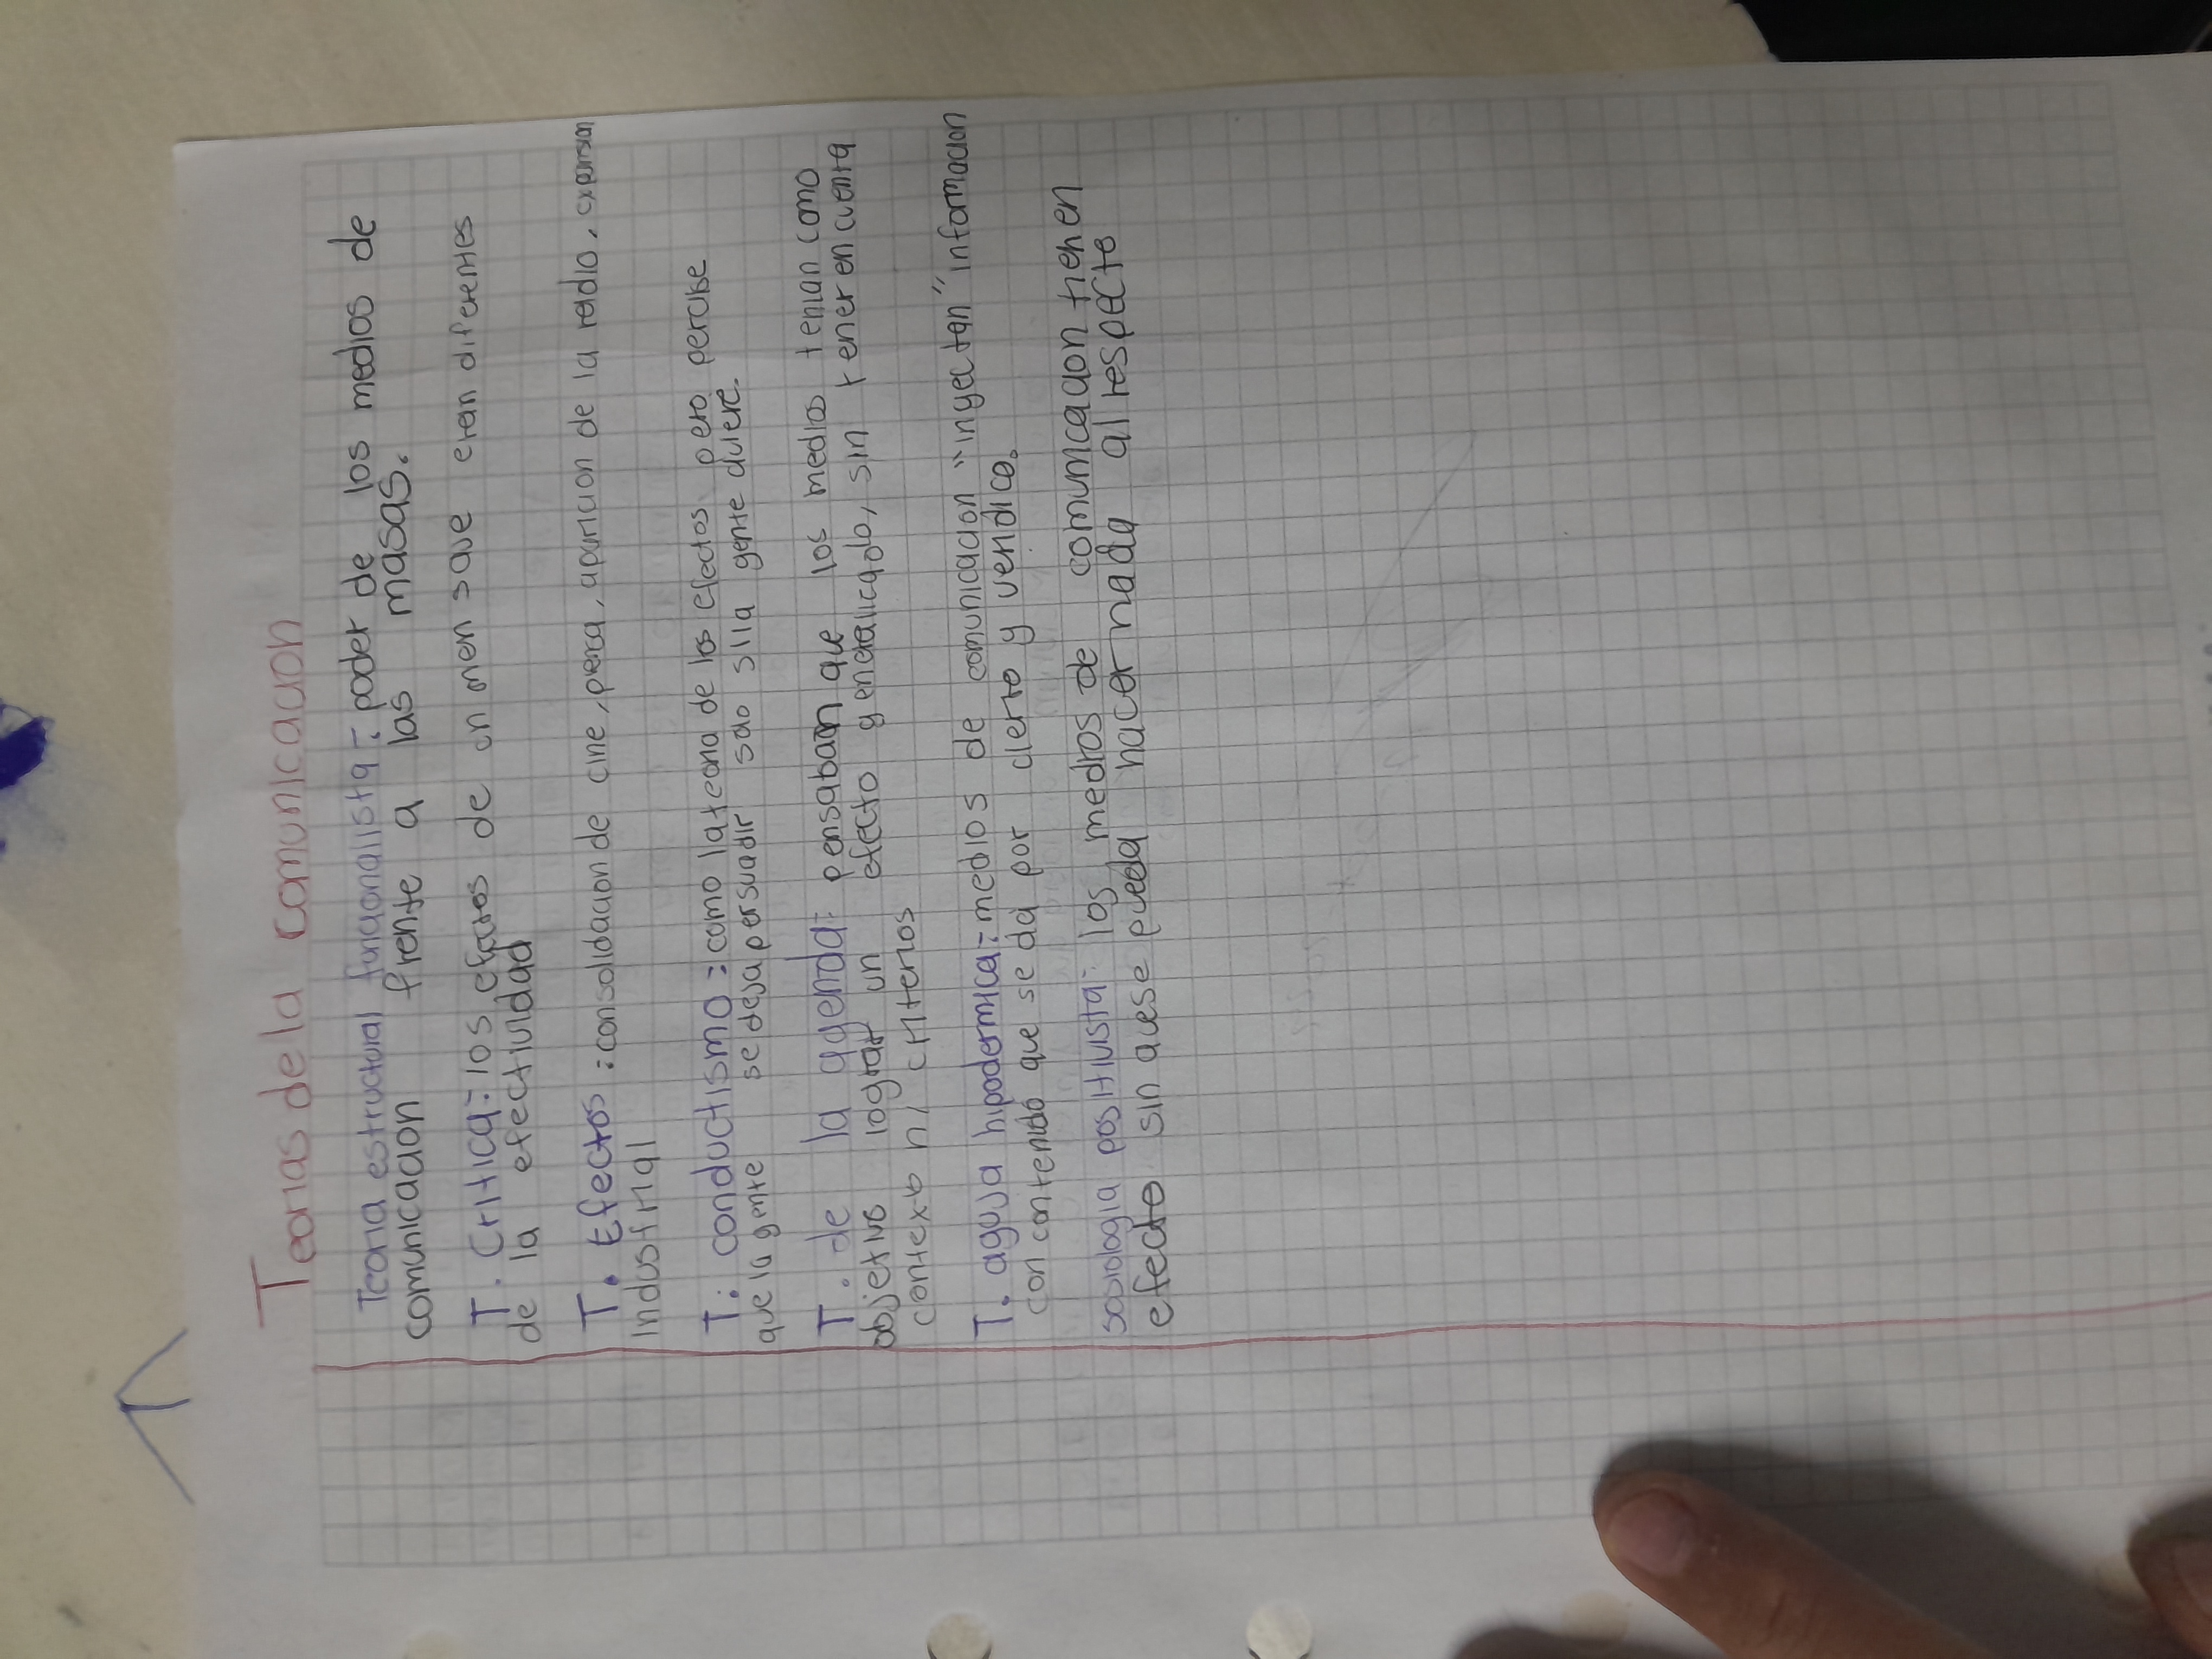 Teorias de la comunicacion
Teoria estructural funcionalista: poder de los medios de
comunicacion frente a las masas.
T. Critica: los efectos de un mensave eran diferentes
de la efectividad
T. Efectos: consolidacion de cine, prenca, aparicion de la radio, expansion
Industrial
T: conductismo: como la teoria de los efectos pero percibe
que la gente se deja persuadir solo si la gente quiere.
T. de la agenda: pensaban que los medios tenian como
objetivo lograr un efecto generalicado, sin tener en cuenta
contexto ni criterios
T. aguja hipodermica: medios de comunicacion "inyectan" informacion
con contenido que se da por cierto y veridico.
sosiologia positivista: los medios de comunicacion tienen
efecto sin quese pueda hacer nada al respecto